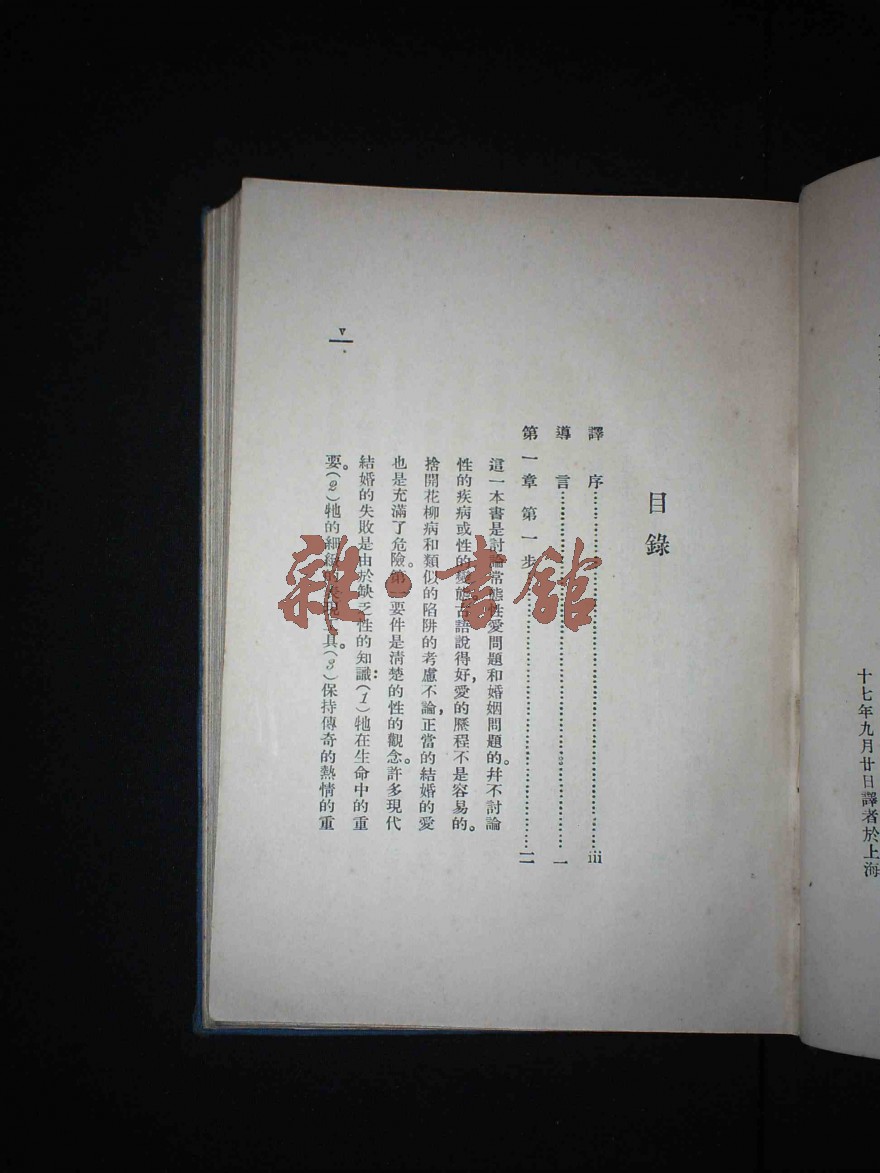 十七年九月廿日譯者於上海
目錄
譯序……iii
導言……一
第一章 第一步……二
這一本書是討論常態性愛問題和婚姻問題的。幷不討論
性的疾病或性的變態古語說得好,愛的歷程不是容易的。
捨開花柳病和類似的陷阱的考慮不論,正當的結婚的愛
也是充滿了危險。第一要件是清楚的性的觀念。許多現代
結婚的失敗是由於缺乏性的知識:(1)牠在生命中的重
要。(2)牠的細緻的具。(3)保持傳奇的熱情的重
v
雜·書館